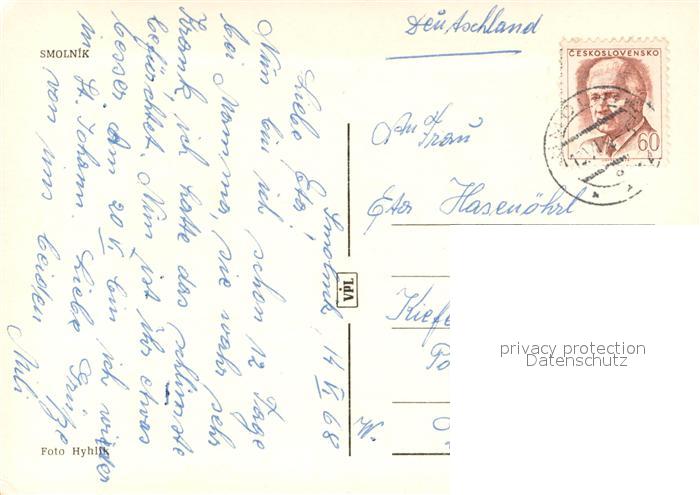 SMOLNÍK
Smolnik, 14 VI 68
Liebe Eta,
Nun bin ich schon 12 Tage
bei Mamma, sie wahr sehr
Krank, ich hatte das schlimste
befürchtet. Nun ist ihr etwas
besser. Am 20 VI. bin ich wieder
in St. Johann. Liebe Grüße
von uns beiden
Mili
Foto Hyhlík
VPL
Deutschland
ČESKOSLOVENSKO
60
An Frau
Eta Hasenöhrl
Kiefe
Po
W.
privacy protection
Datenschutz